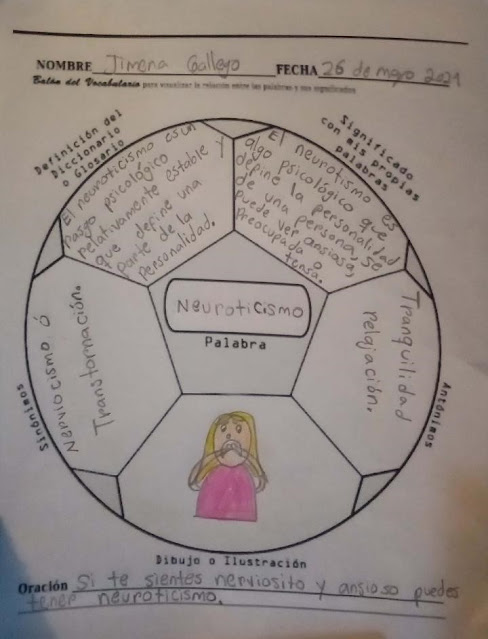 NOMBRE Jimena Gallego FECHA 26 de mayo 2021
Balón del Vocabulario para visualizar la relación entre las palabras y sus significados
Definición del
Diccionario
o Glosario
El neuroticismo es un
rasgo psicológico
relativamente estable y
que define una
parte de la
personalidad.
Significado
con mis propias
palabras
El neurotismo es
algo psicológico que
define la personalidad
de una persona, se
puede ver ansiosa,
preocupada o
tensa.
Neuroticismo
Palabra
Sinónimos
Nerviocismo ó
Transtornación.
Antónimos
Tranquilidad
relajación.
Dibujo o Ilustración
Oración Si te sientes nerviosito y ansioso puedes
tener neuroticismo.